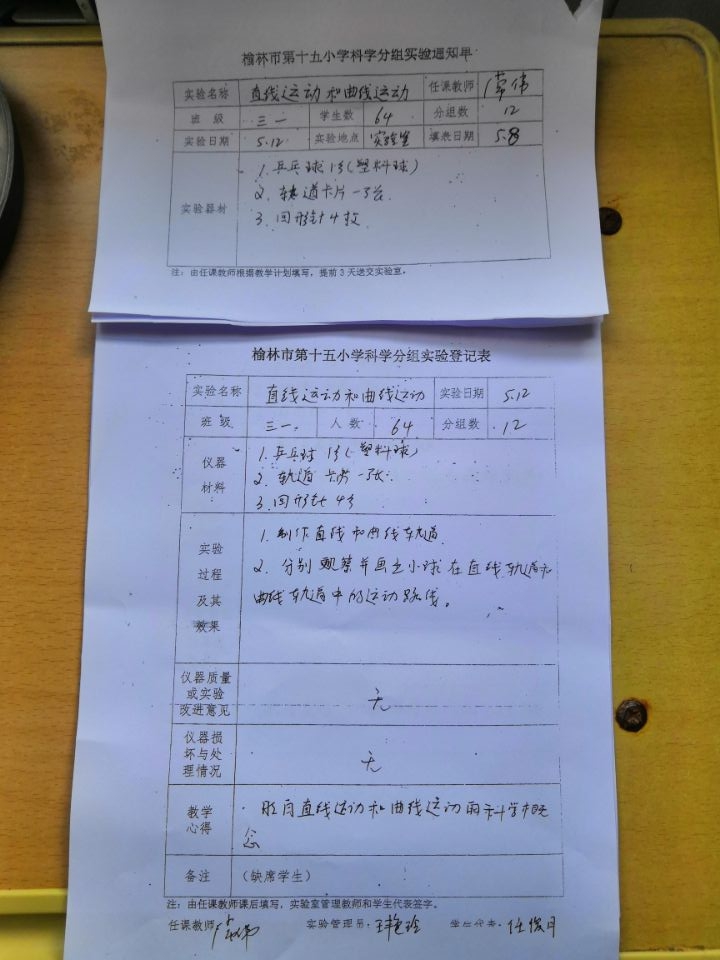 榆林市第十五小学科学分组实验通知单
实验名称 直线运动和曲线运动 任课教师
班 级 三一 学生数 64 分组数 12
实验日期 5.12 实验地点 实验室 填表日期 5.8
实验器材
1.乒乓球1个(塑料球)
2.轨道卡片一张
3.回形针4枚
注:由任课教师根据教学计划填写,提前3天送交实验室。
榆林市第十五小学科学分组实验登记表
实验名称 直线运动和曲线运动 实验日期 5.12
班 级 三一. 人 数 64 分组数 12
仪器
材料
1.乒乓球1个(塑料球)
2.轨道卡片一张
3.回形针4个
实验
过程
及其
效果
1.制作直线和曲线轨道
2.分别观察并画出小球在直线轨道和
曲线轨道中的运动路线。
仪器质量
或实验
改进意见
无
仪器损
坏与处
理情况
无
教学
心得
直线运动和曲线运动的科学概
念
备注 (缺席学生)
注:由任课教师课后填写,实验室管理教师和学生代表签字。
任课教师: 实验管理员: 学生代表: